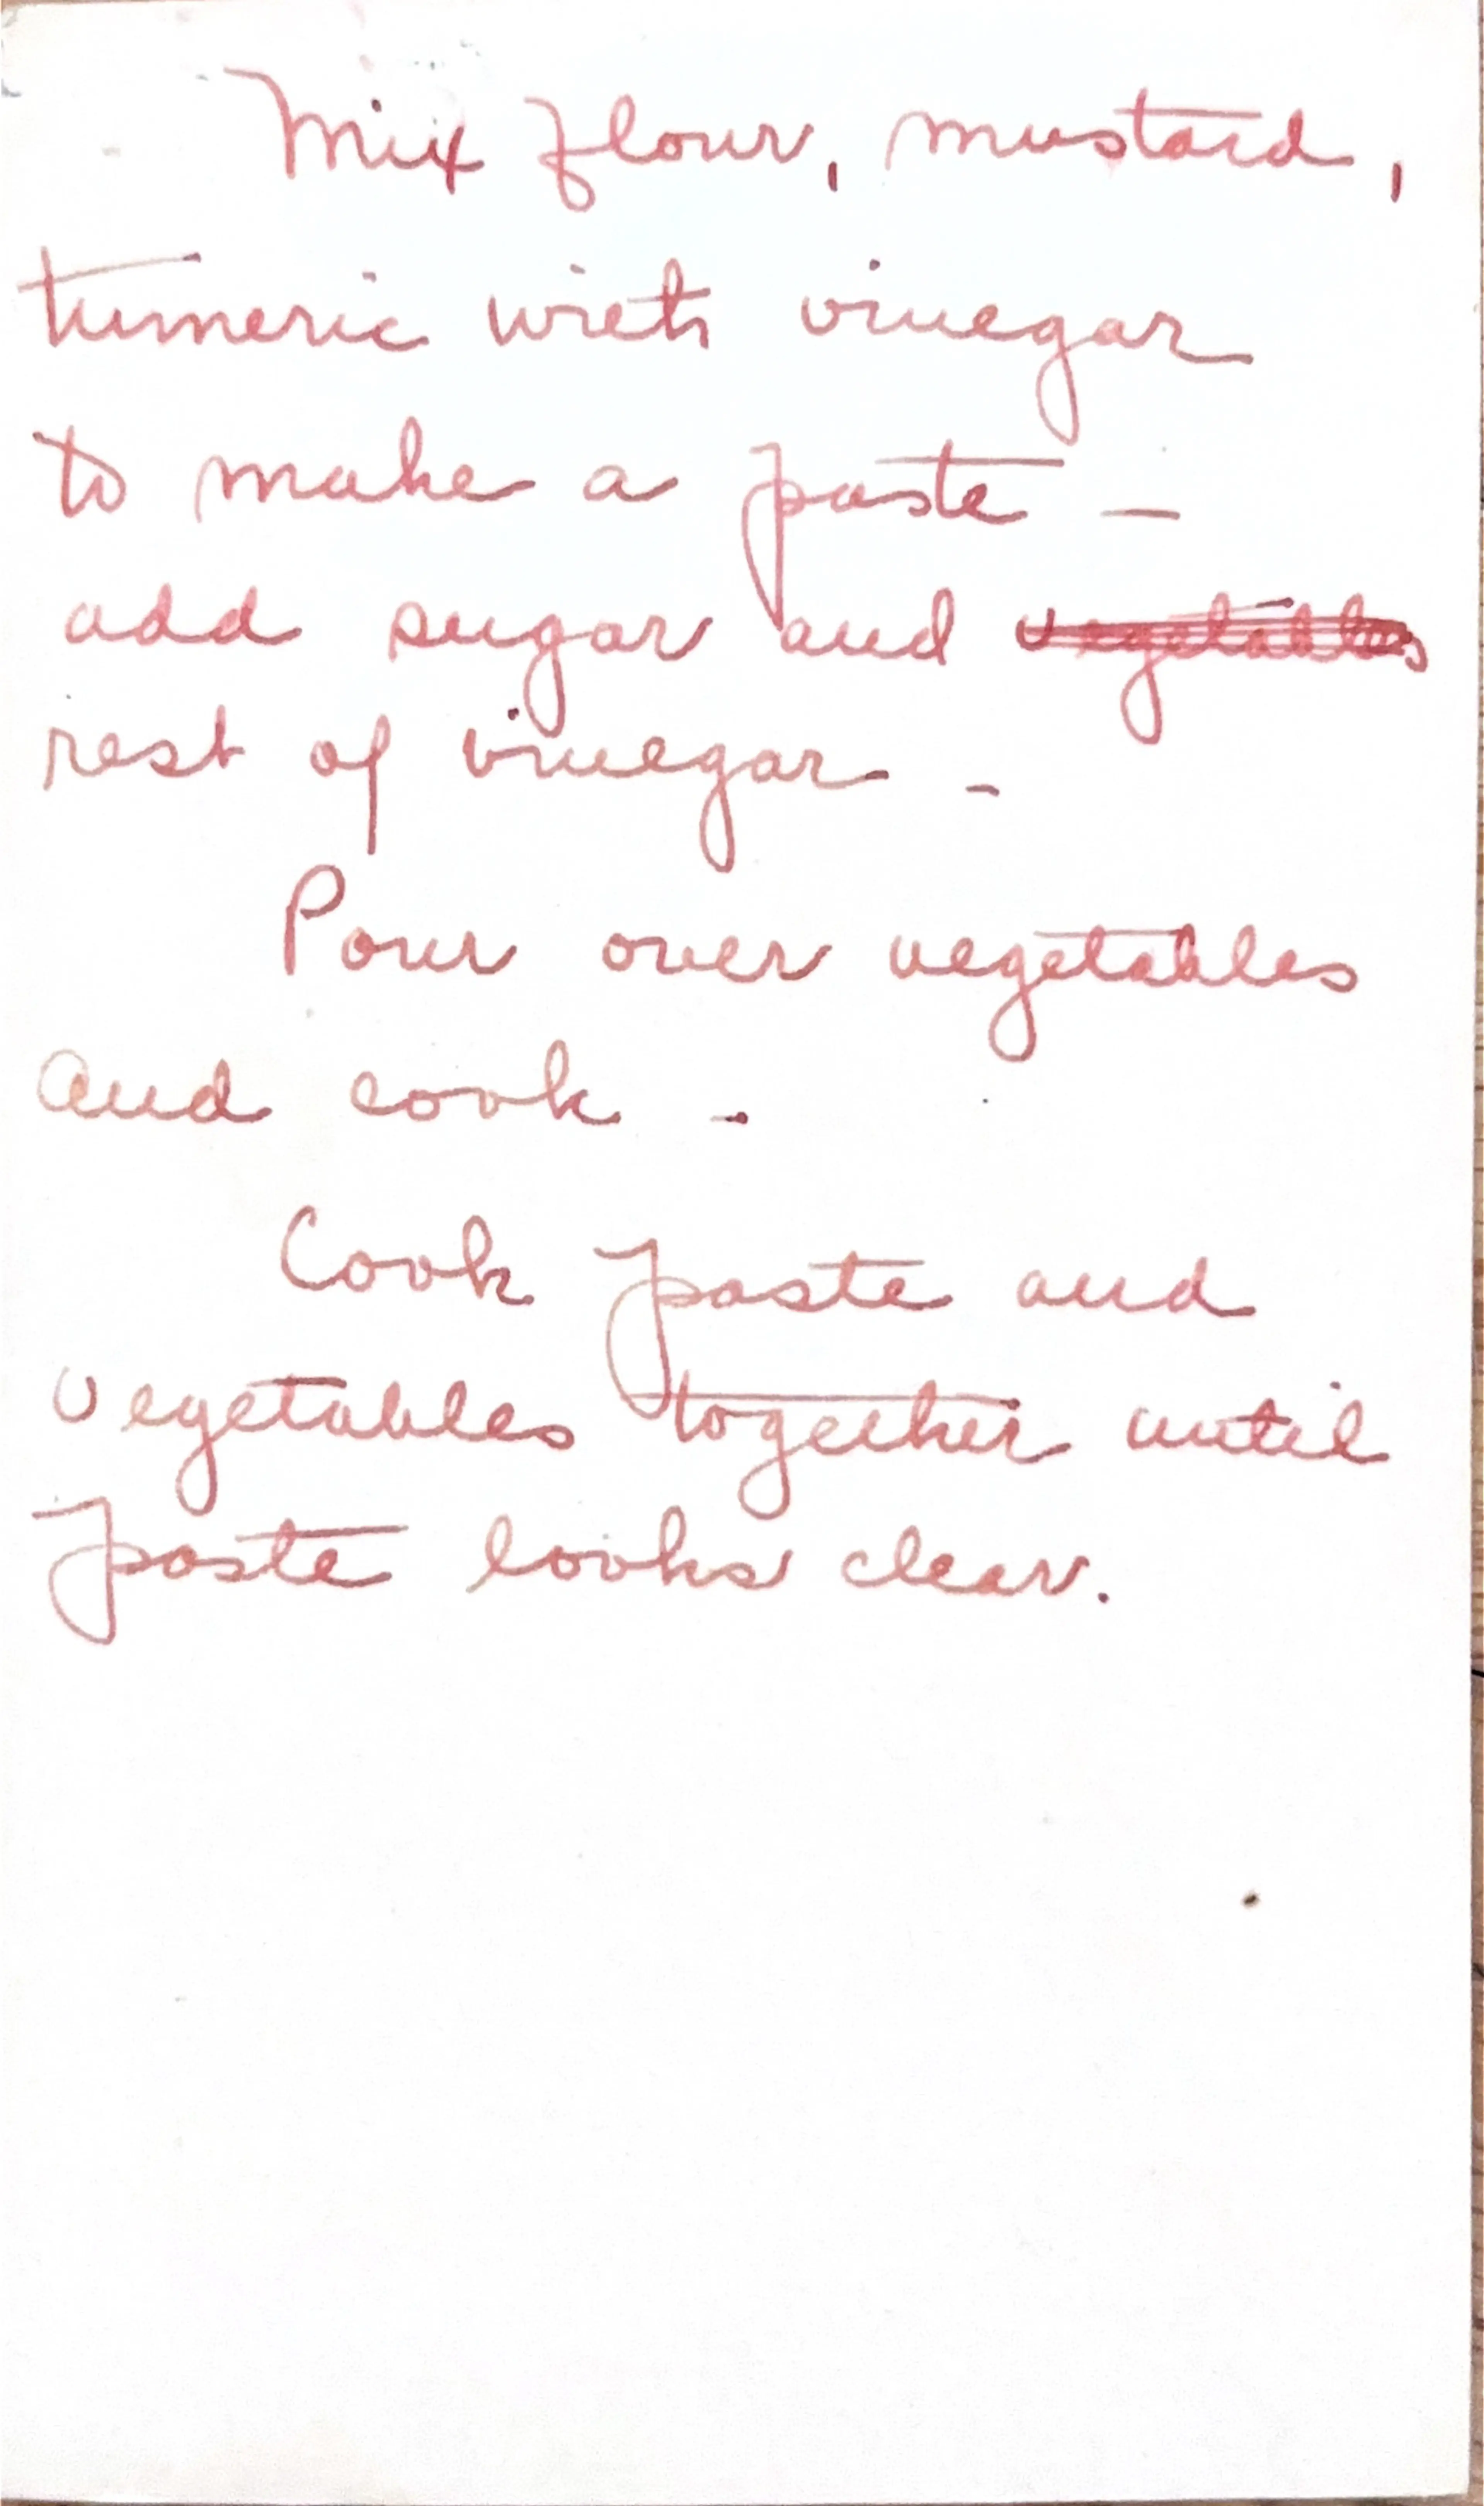 Mix flour, mustard,
tumeric with vinegar
to make a paste –
add sugar and ~~vegetables~~
rest of vinegar –
Pour over vegetables
and cook –
Cook paste and
vegetables together until
paste looks clear.